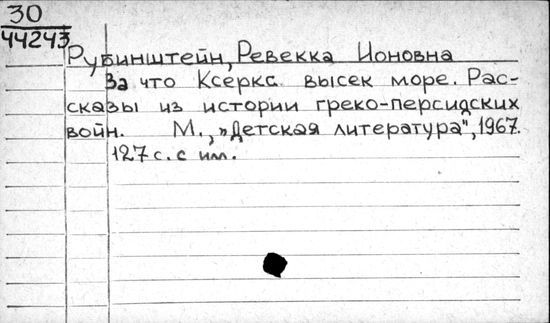 30
44243
Рубинштейн, Ревекка Ионовна
За что Ксеркс высек море. Рас-
сказы из истории греко-персидских
войн. М., "Детская литература", 1967.
127 с. с ил.